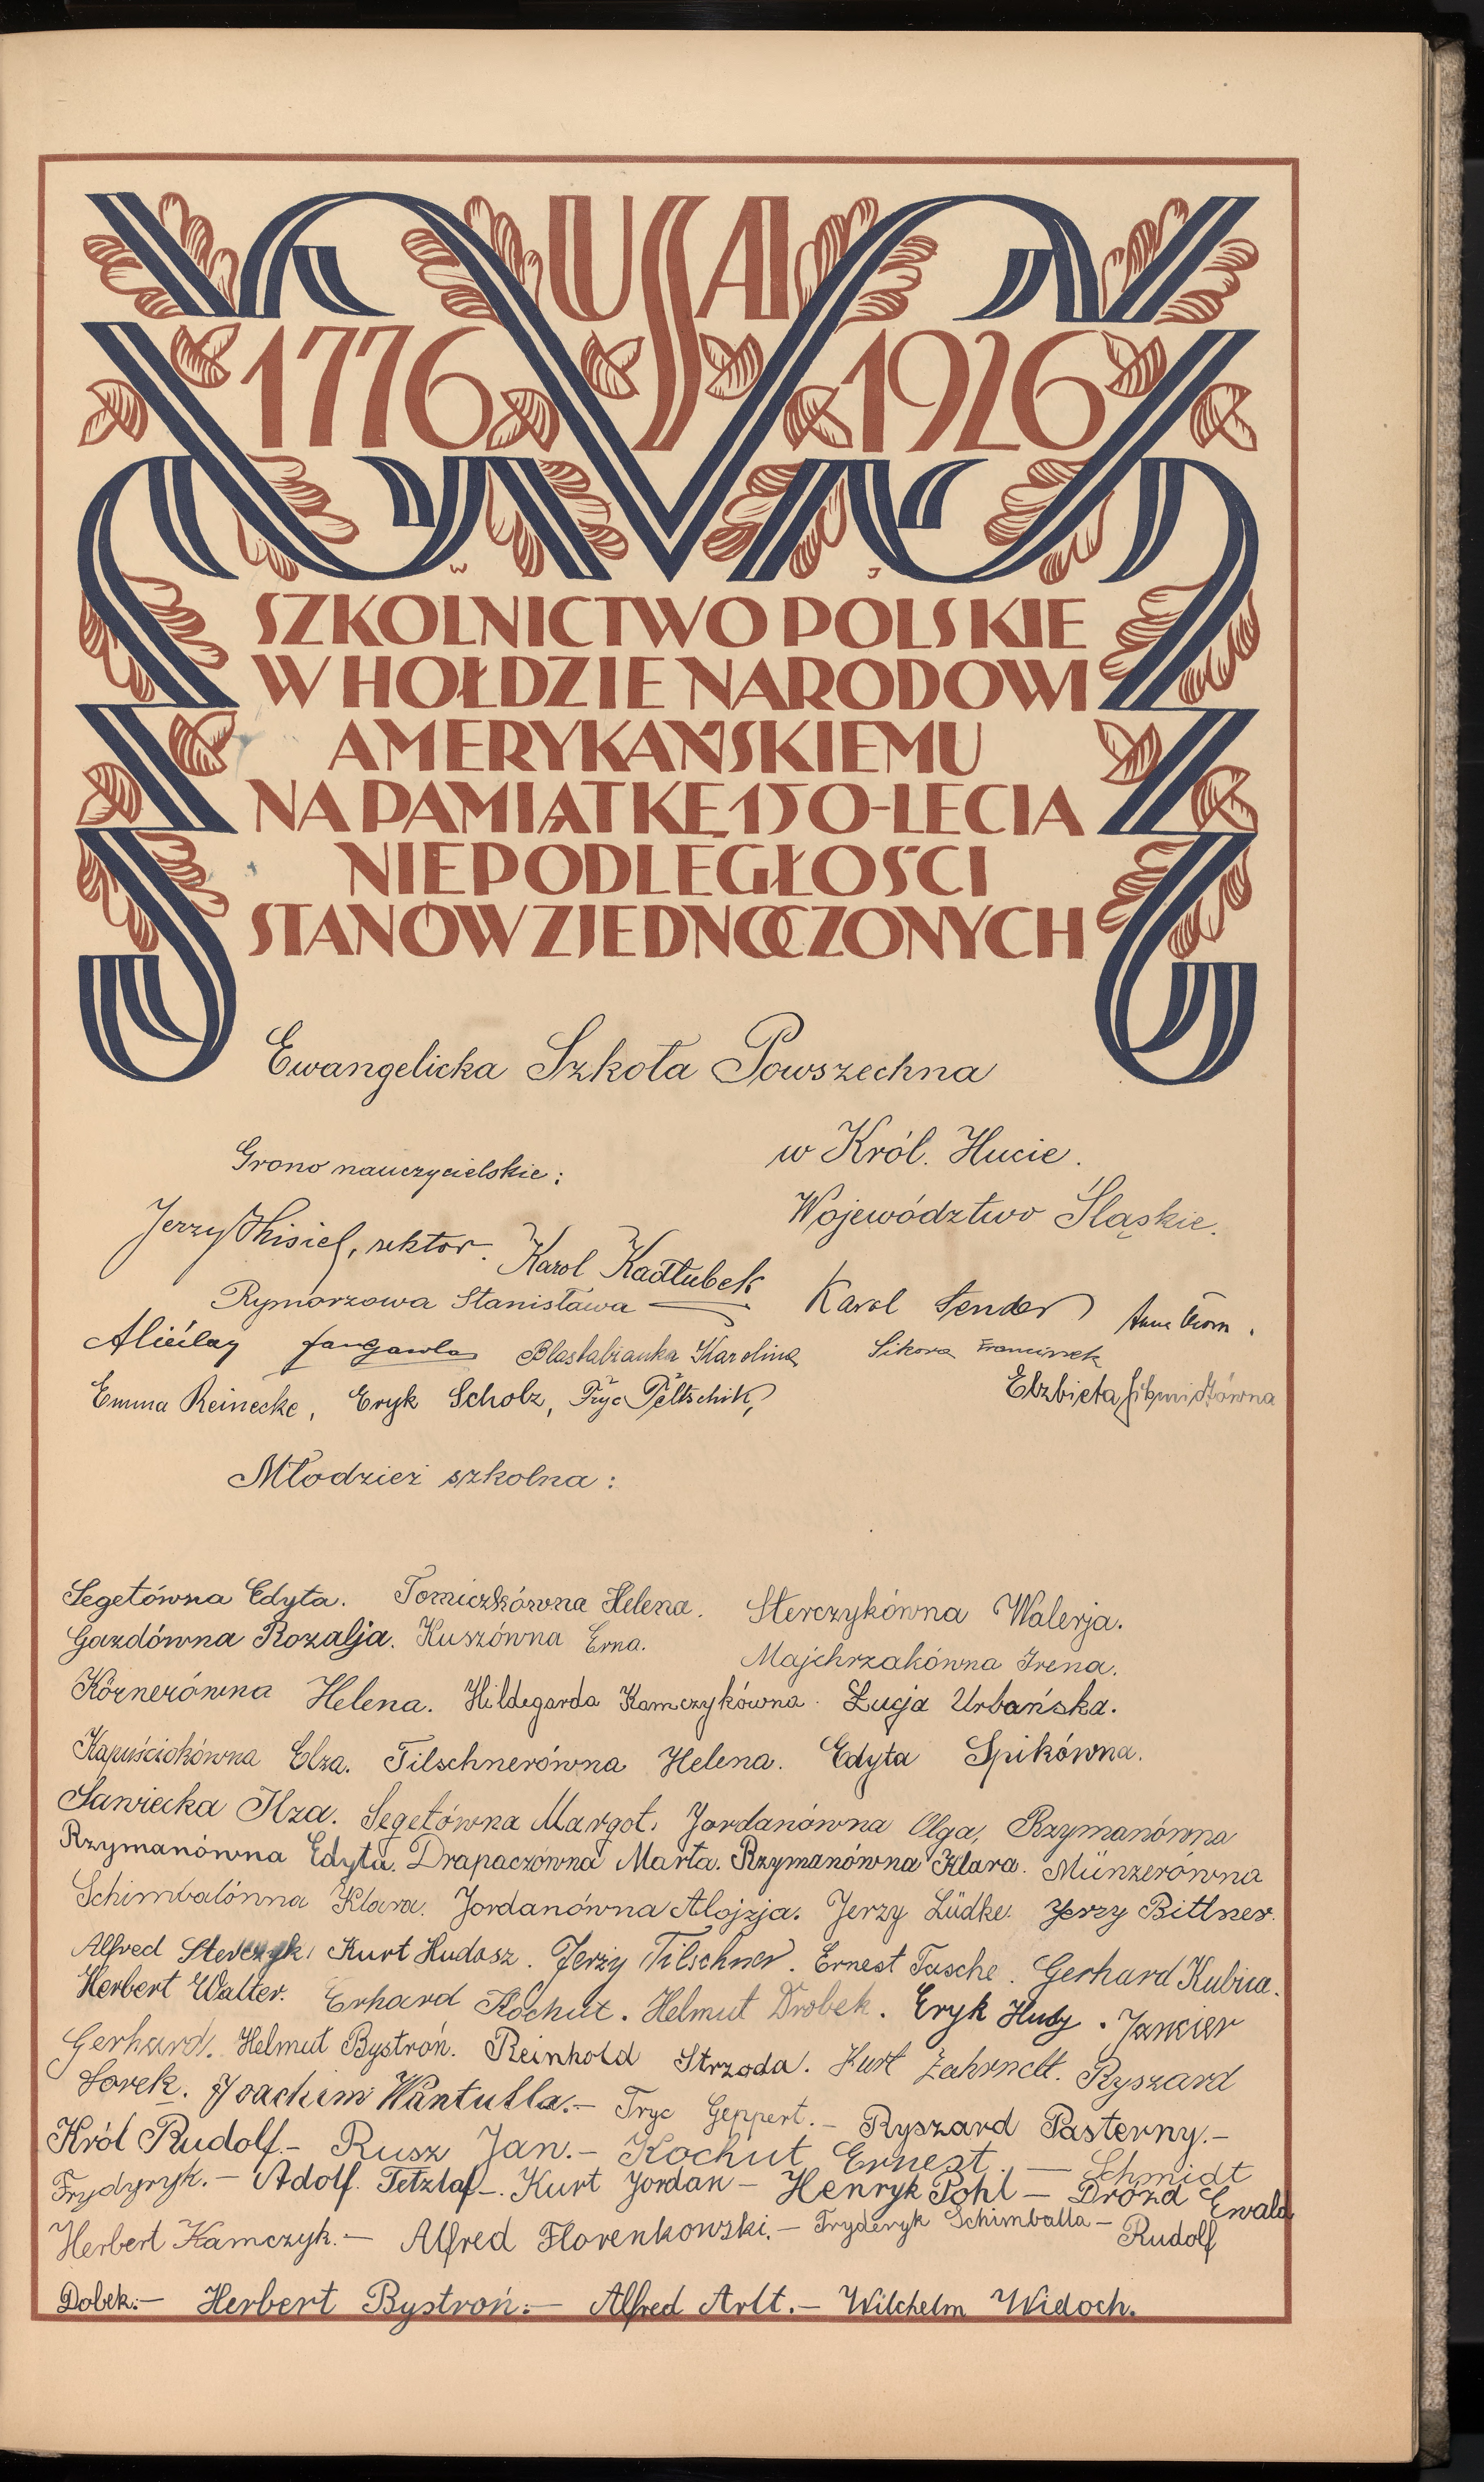 USA
1776 1926
W J
SZKOLNICTWO POLSKIE
W HOŁDZIE NARODOWI
AMERYKAŃSKIEMU
NA PAMIĄTKĘ 150-LECIA
NIEPODLEGŁOŚCI
STANÓW ZJEDNOCZONYCH
Ewangelicka Szkoła Powszechna
w Król. Hucie.
Województwo Śląskie.
Grono nauczycielskie:
Jerzy rektor. Karol Kadłubek
Rymorzowa Stanisława Karol Sender Anna
Karolina Sikora Franciszek
Emma Reinecke, Eryk Scholz, Fryc Peltschik, Elzbieta
Młodzież szkolna:
Segetówna Edyta. Tomiczkówna Helena. Sterczykówna Walerja.
Gazdówna Rozalja. Kuszówna Erna. Majchrzakówna Irena.
Körnerówna Helena. Hildegarda Kamczykówna. Łucja Urbańska.
Kapuściokówna Elza. Tilschnerówna Helena. Edyta Spikówna.
Sawiecka Ilza. Segetówna Margot. Jordanówna Olga. Rzymanówna
Rzymanówna Edyta. Drapaczówna Marta. Rzymanówna Klara. Münzerówna
Schimbalónna Klara. Jordanówna Alojzja. Jerzy Lüdke. Jerzy Bittner.
Alfred Sterczyk. Kurt Hudasz. Jerzy Tilschner. Ernest Tasche. Gerhard Kubica.
Herbert Walter. Erhard Kochut. Helmut Drobek. Eryk Huby. Jancier
Gerhard. Helmut Bystroń. Reinhold Strzoda. Kurt Zahrnelt. Ryszard
Sorek. Joachim Wantulla.— Fryc Geppert.— Ryszard Pasterny.—
Król Rudolf.— Rusz Jan.— Kochut Ernest. — Schmidt
Frydyryk.— Adolf Tetzlaf—. Kurt Jordan — Henryk Pohl — Drózd Ewald
Herbert Kamczyk.— Alfred Florenkowski.— Fryderyk Schimballa — Rudolf
Dobek.— Herbert Bystroń.— Alfred Arlt.— Wilchelm Widoch.